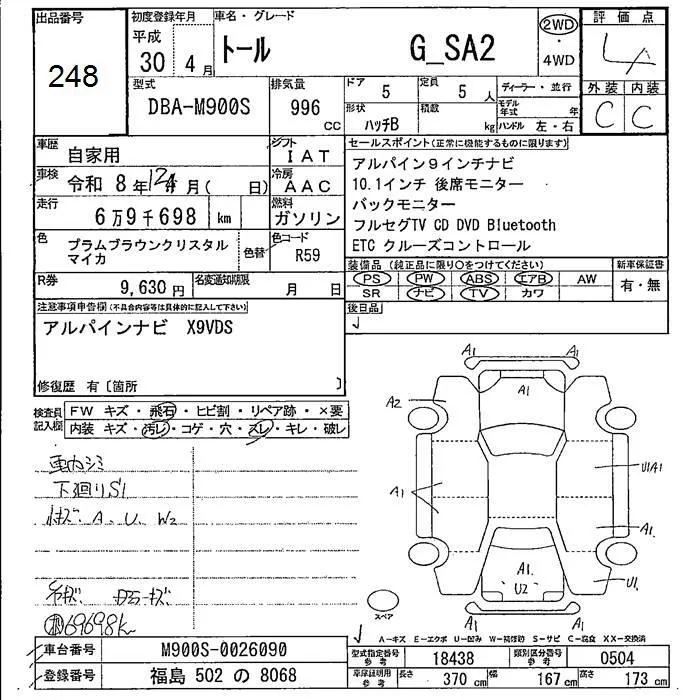 出品番号
248
初度登録年月
平成
30 4 月
車名・グレード
トール G_SA2
2WD
・
4WD
評価点
外装 内装
C C
型式
DBA-M900S
排気量
996
cc
ドア
5
定員
5 人
形状
ハッチB
積数
kg
ディーラー・並行
モデル年式 年
ハンドル 左・右
車歴
自家用
シフト
IAT
車検
令和 8年 12月( 日)
冷房
AAC
走行
6万9千698 km
燃料
ガソリン
色
プラムブラウンクリスタル
マイカ
色替
色コード
R59
R券
9,630円
名変通知期限
月 日
セールスポイント(正常に機能するものに限ります)
アルパイン9インチナビ
10.1インチ 後席モニター
バックモニター
フルセグTV CD DVD Bluetooth
ETC クルーズコントロール
装備品(純正品に限り○をつけてください)
新車保証書
PS PW ABS エアB AW
有・無
SR ナビ TV カワ
後日品
注意事項申告欄(不具合内容等は具体的に記入して下さい)
アルパインナビ X9VDS
修復歴 有〔箇所 〕
検査員
記入欄
FW キズ・飛石・ヒビ割・リペア跡・×要
内装 キズ・汚レ・コゲ・穴・スレ・キレ・破レ
下廻りS1
A、U、W2
69698k
A1
A1
A1
A2
U1A1
A1
A1
A1
U2
U1
スペア
A-キズ E-エクボ U-凹み W-補修跡 S-サビ C-腐食 XX-交換済
車台番号
M900S-0026090
登録番号
福島 502 の 8068
型式指定番号
参考
18438
類別区分番号
参考
0504
車庫証明用
参考
長さ 370 cm
幅 167 cm
高さ 173 cm